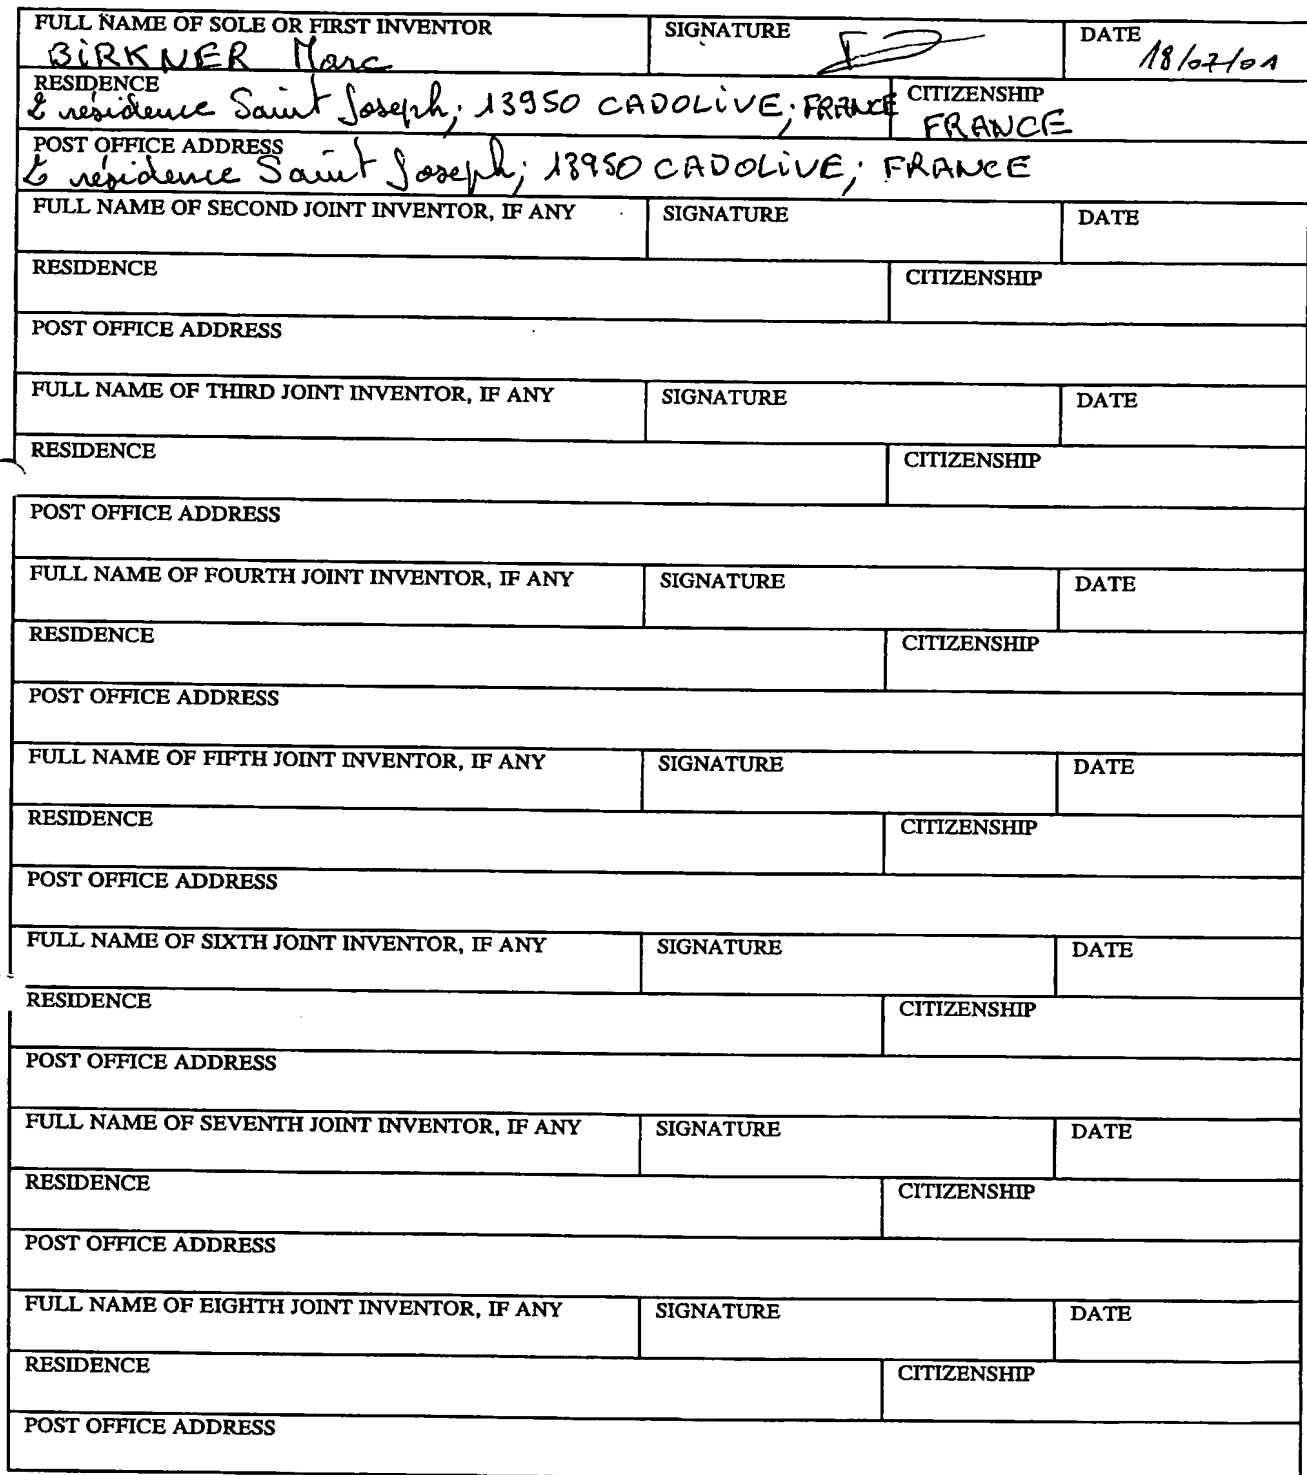 FULL NAME OF SOLE OR FIRST INVENTOR SIGNATURE DATE
BiRKNER Marc 18/07/01
RESIDENCE CITIZENSHIP
résidence Saint Joseph; 13950 CADOLiVE; FRANCE FRANCE
POST OFFICE ADDRESS
résidence Saint Joseph; 13950 CADOLiVE; FRANCE
FULL NAME OF SECOND JOINT INVENTOR, IF ANY SIGNATURE DATE
RESIDENCE CITIZENSHIP
POST OFFICE ADDRESS
FULL NAME OF THIRD JOINT INVENTOR, IF ANY SIGNATURE DATE
RESIDENCE CITIZENSHIP
POST OFFICE ADDRESS
FULL NAME OF FOURTH JOINT INVENTOR, IF ANY SIGNATURE DATE
RESIDENCE CITIZENSHIP
POST OFFICE ADDRESS
FULL NAME OF FIFTH JOINT INVENTOR, IF ANY SIGNATURE DATE
RESIDENCE CITIZENSHIP
POST OFFICE ADDRESS
FULL NAME OF SIXTH JOINT INVENTOR, IF ANY SIGNATURE DATE
RESIDENCE CITIZENSHIP
POST OFFICE ADDRESS
FULL NAME OF SEVENTH JOINT INVENTOR, IF ANY SIGNATURE DATE
RESIDENCE CITIZENSHIP
POST OFFICE ADDRESS
FULL NAME OF EIGHTH JOINT INVENTOR, IF ANY SIGNATURE DATE
RESIDENCE CITIZENSHIP
POST OFFICE ADDRESS